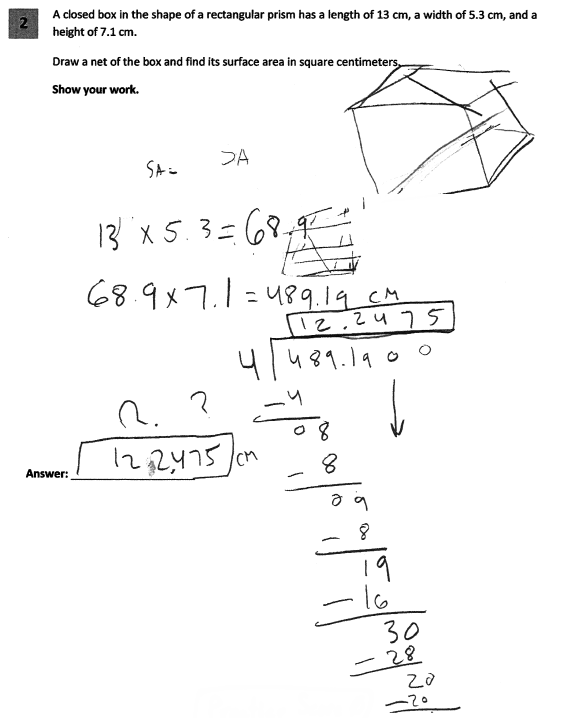 2
A closed box in the shape of a rectangular prism has a length of 13 cm, a width of 5.3 cm, and a
height of 7.1 cm.
Draw a net of the box and find its surface area in square centimeters.
Show your work.
SA=
13 x 5.3 = 68.9
68.9 x 7.1 = 489.19 cm
12.2475
4 489.1900
-4
08
- 8
09
- 8
19
- 16
30
- 28
20
-20
?
Answer: 122.2475 cm